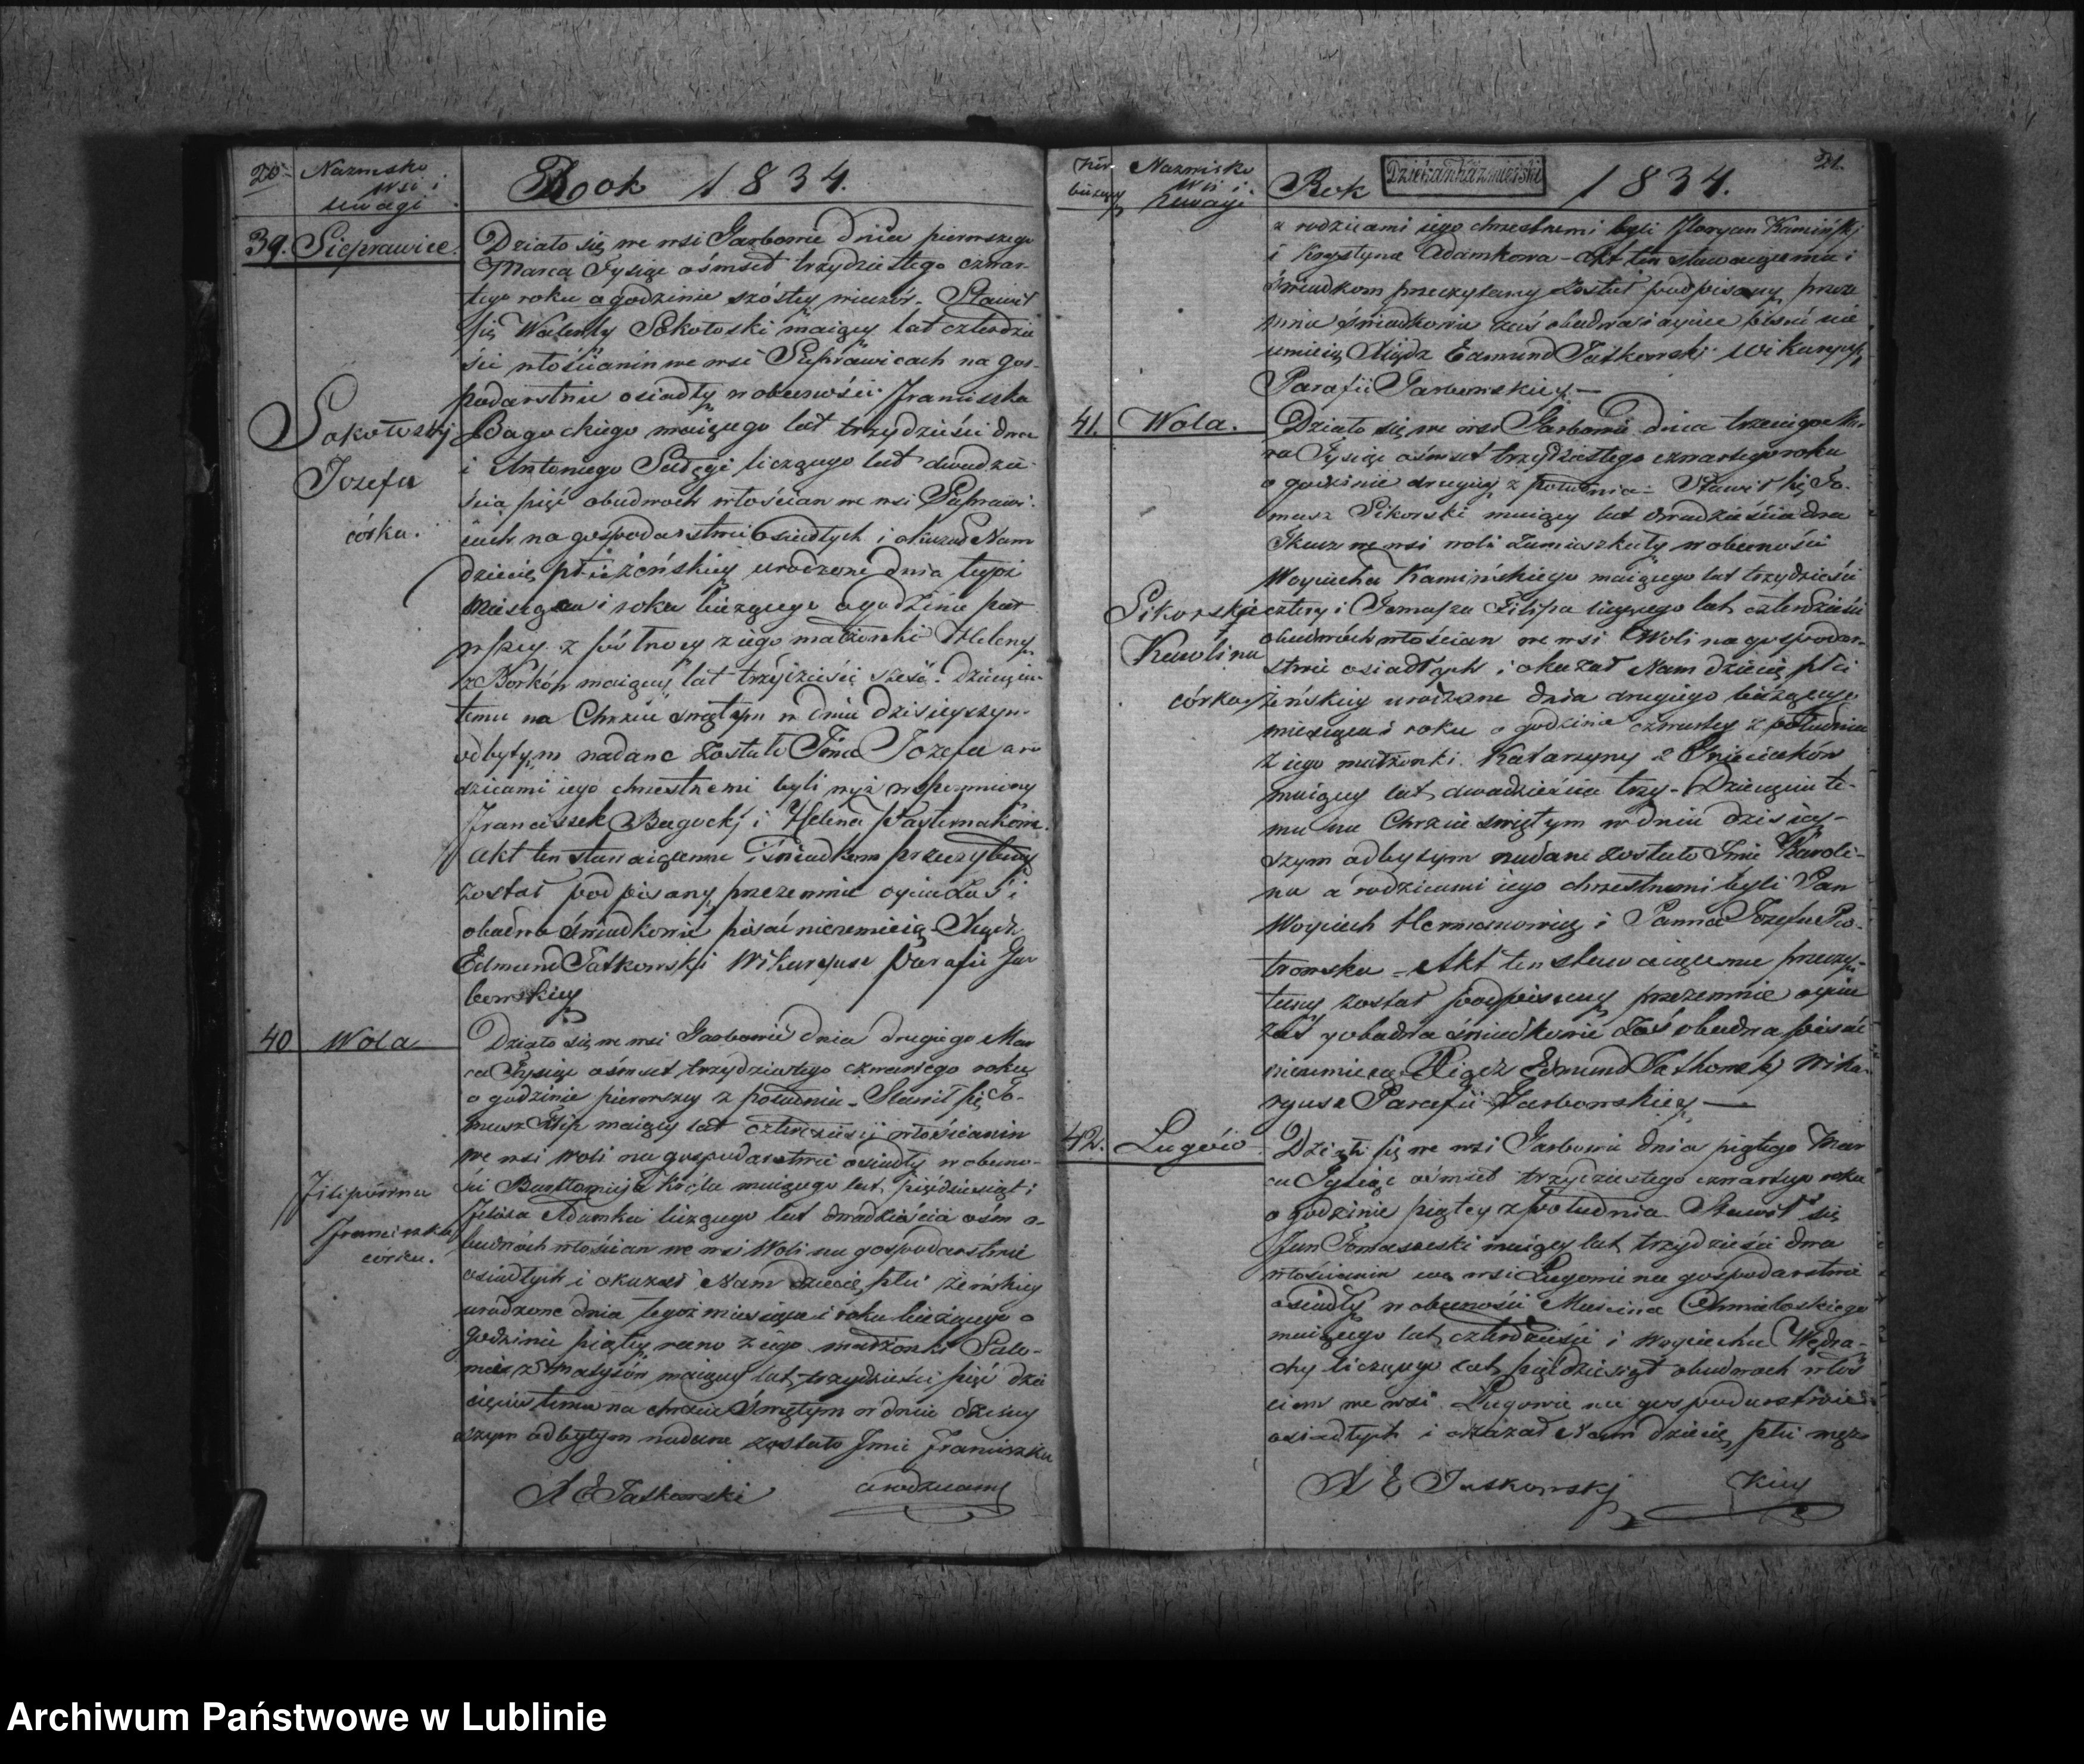 20
Nazwisko
Wsi i
uwagi
Rook 1834.
39. Sieprawice.
Sokołoski
Jozefa
córka.
Działo się we wsi Garbowie dnia pierwszego
Marca Tysiąc ośmset trzydziestego czwar-
tego roku o godzinie szóstey wieczór - Stawił
się Walenty Sokołoski maiący lat czterdzie
ści włościanin we wsi Sieprawicach na gos-
podarstwie osiadły w obecności Franciszka
Bagockiego maiącego lat trzydzieści dwa
i Antoniego liczącego lat dwadzie-
ścia pięć obudwoch włościan we wsi Sieprawi-
cach na gospodarstwie osiadłych i okazał Nam
dziecię płci żeńskiey urodzone dnia tegoż
miesiąca i roku bieżącego o godzinie pier
wszey z północy z iego małżonki Heleny
z Borków maiącey lat trzydzieści sześć. Dziecięciu
temu na Chrzcie świętym w dniu dzisieyszym
odbytym nadane zostało Imie Jozefa a ro
dzicami iego chrzestnemi byli wyż wspomniony
Franciszek Bagocki i Helena Pasternakowa.
Akt ten stawaiącemu i świadkom przeczytany
został podpisany przezemnie oyciec zaś i
obadwa świadkowie pisać nieumieią Xiądz
Edmund Tatkowski Wikaryusz Parafii Gar
bowskiey
40 Wola
Filipówna
Franciszka
córka.
Działo się we wsi Garbowie dnia drugiego Mar
ca Tysiąc ośmset trzydziestego czwartego roku
o godzinie pierwszey z południa - Stawił się To-
masz Filip maiący lat czterdzieści włościanin
we wsi Woli na gospodarstwie osiadły w obecno-
ści Bartłomieja Króla maiącego lat pięćdziesiąt i
Adamka liczącego lat dwadzieścia ośm o-
budwóch włościan we wsi Woli na gospodarstwie
osiadłych i okazał Nam dziecię płci żeńskiey
urodzone dnia tegoż miesiąca i roku bieżącego o
godzinie piątey rano z iego małżonki Salo-
mei z Matysów maiącey lat trzydzieści pięć dzie
cięciu temu na chrzcie Świętym w dniu dzisiey
szym odbytym nadane zostało Imie Franciszka
X E Tatkowski a rodzicami
Num
bieżący
Nazwisko
Wsi i
Uwagi
Rok
Dziekan Kazimierski
1834.
21.
a rodzicami iego chrzestnemi byli Floryan Kamiński
i Krystyna Adamkowa - Akt ten stawaiącemu i
świadkom przeczytany został podpisany przeze
mnie świadkowie zaś obudwa i oyciec pisać nie
umieią Xiądz Edmund Tatkowski Wikaryusz
Parafii Garbowskiey. —
41. Wola.
Sikorskie
Karolina
córka
Działo się we wsi Garbowie dnia trzeciego Mar
ca Tysiąc ośmset trzydziestego czwartego roku
o godzinie drugiey z południa - Stawił się To-
masz Sikorski maiący lat dwadzieścia dwa
Tkacz we wsi woli zamieszkały w obecności
Woyciecha Kamińskiego maiącego lat trzydzieści
cztery i Tomasza Filipa liczącego lat czterdzieści
obudwóch włościan we wsi Woli na gospodar-
stwie osiadłych i okazał Nam dziecię płci
żeńskiey urodzone dnia drugiego bieżącego
miesiąca i roku o godzinie czwartey z południa
z iego małżonki Katarzyny z
maiącey lat dwadzieścia trzy - Dziecięciu te-
mu na Chrzcie świętym w dniu dzisiey-
szym odbytym nadane zostało Imie Karoli-
na a rodzicami iego chrzestnemi byli Pan
Woyciech Hermanowicz i Panna Jozefa Pio-
trowska - Akt ten stawaiącemu przeczy-
tany został podpisany przezemnie oyciec
zaś y obadwa świadkowie zaś obudwa pisać
nieumieią Xiądz Edmund Tatkowski Wika-
ryusz Parafii Garbowskiey —
42. Lugów
Działo się we wsi Garbowie dnia piątego Mar
ca Tysiąc ośmset trzydziestego czwartego roku
o godzinie piątey z południa Stawił się
Jan Tomaszeski maiący lat trzydzieści dwa
włościanin we wsi Lugowie na gospodarstwie
osiadły w obecności Marcina Chmieloskiego
maiącego lat czterdzieści i Woyciecha Wędra-
chy liczącego lat pięćdziesiąt obudwoch włoś
cian we wsi Lugowie na gospodarstwie
osiadłych i okazał Nam dziecię płci męz
X E Tatkowski kiey
Archiwum Państwowe w Lublinie